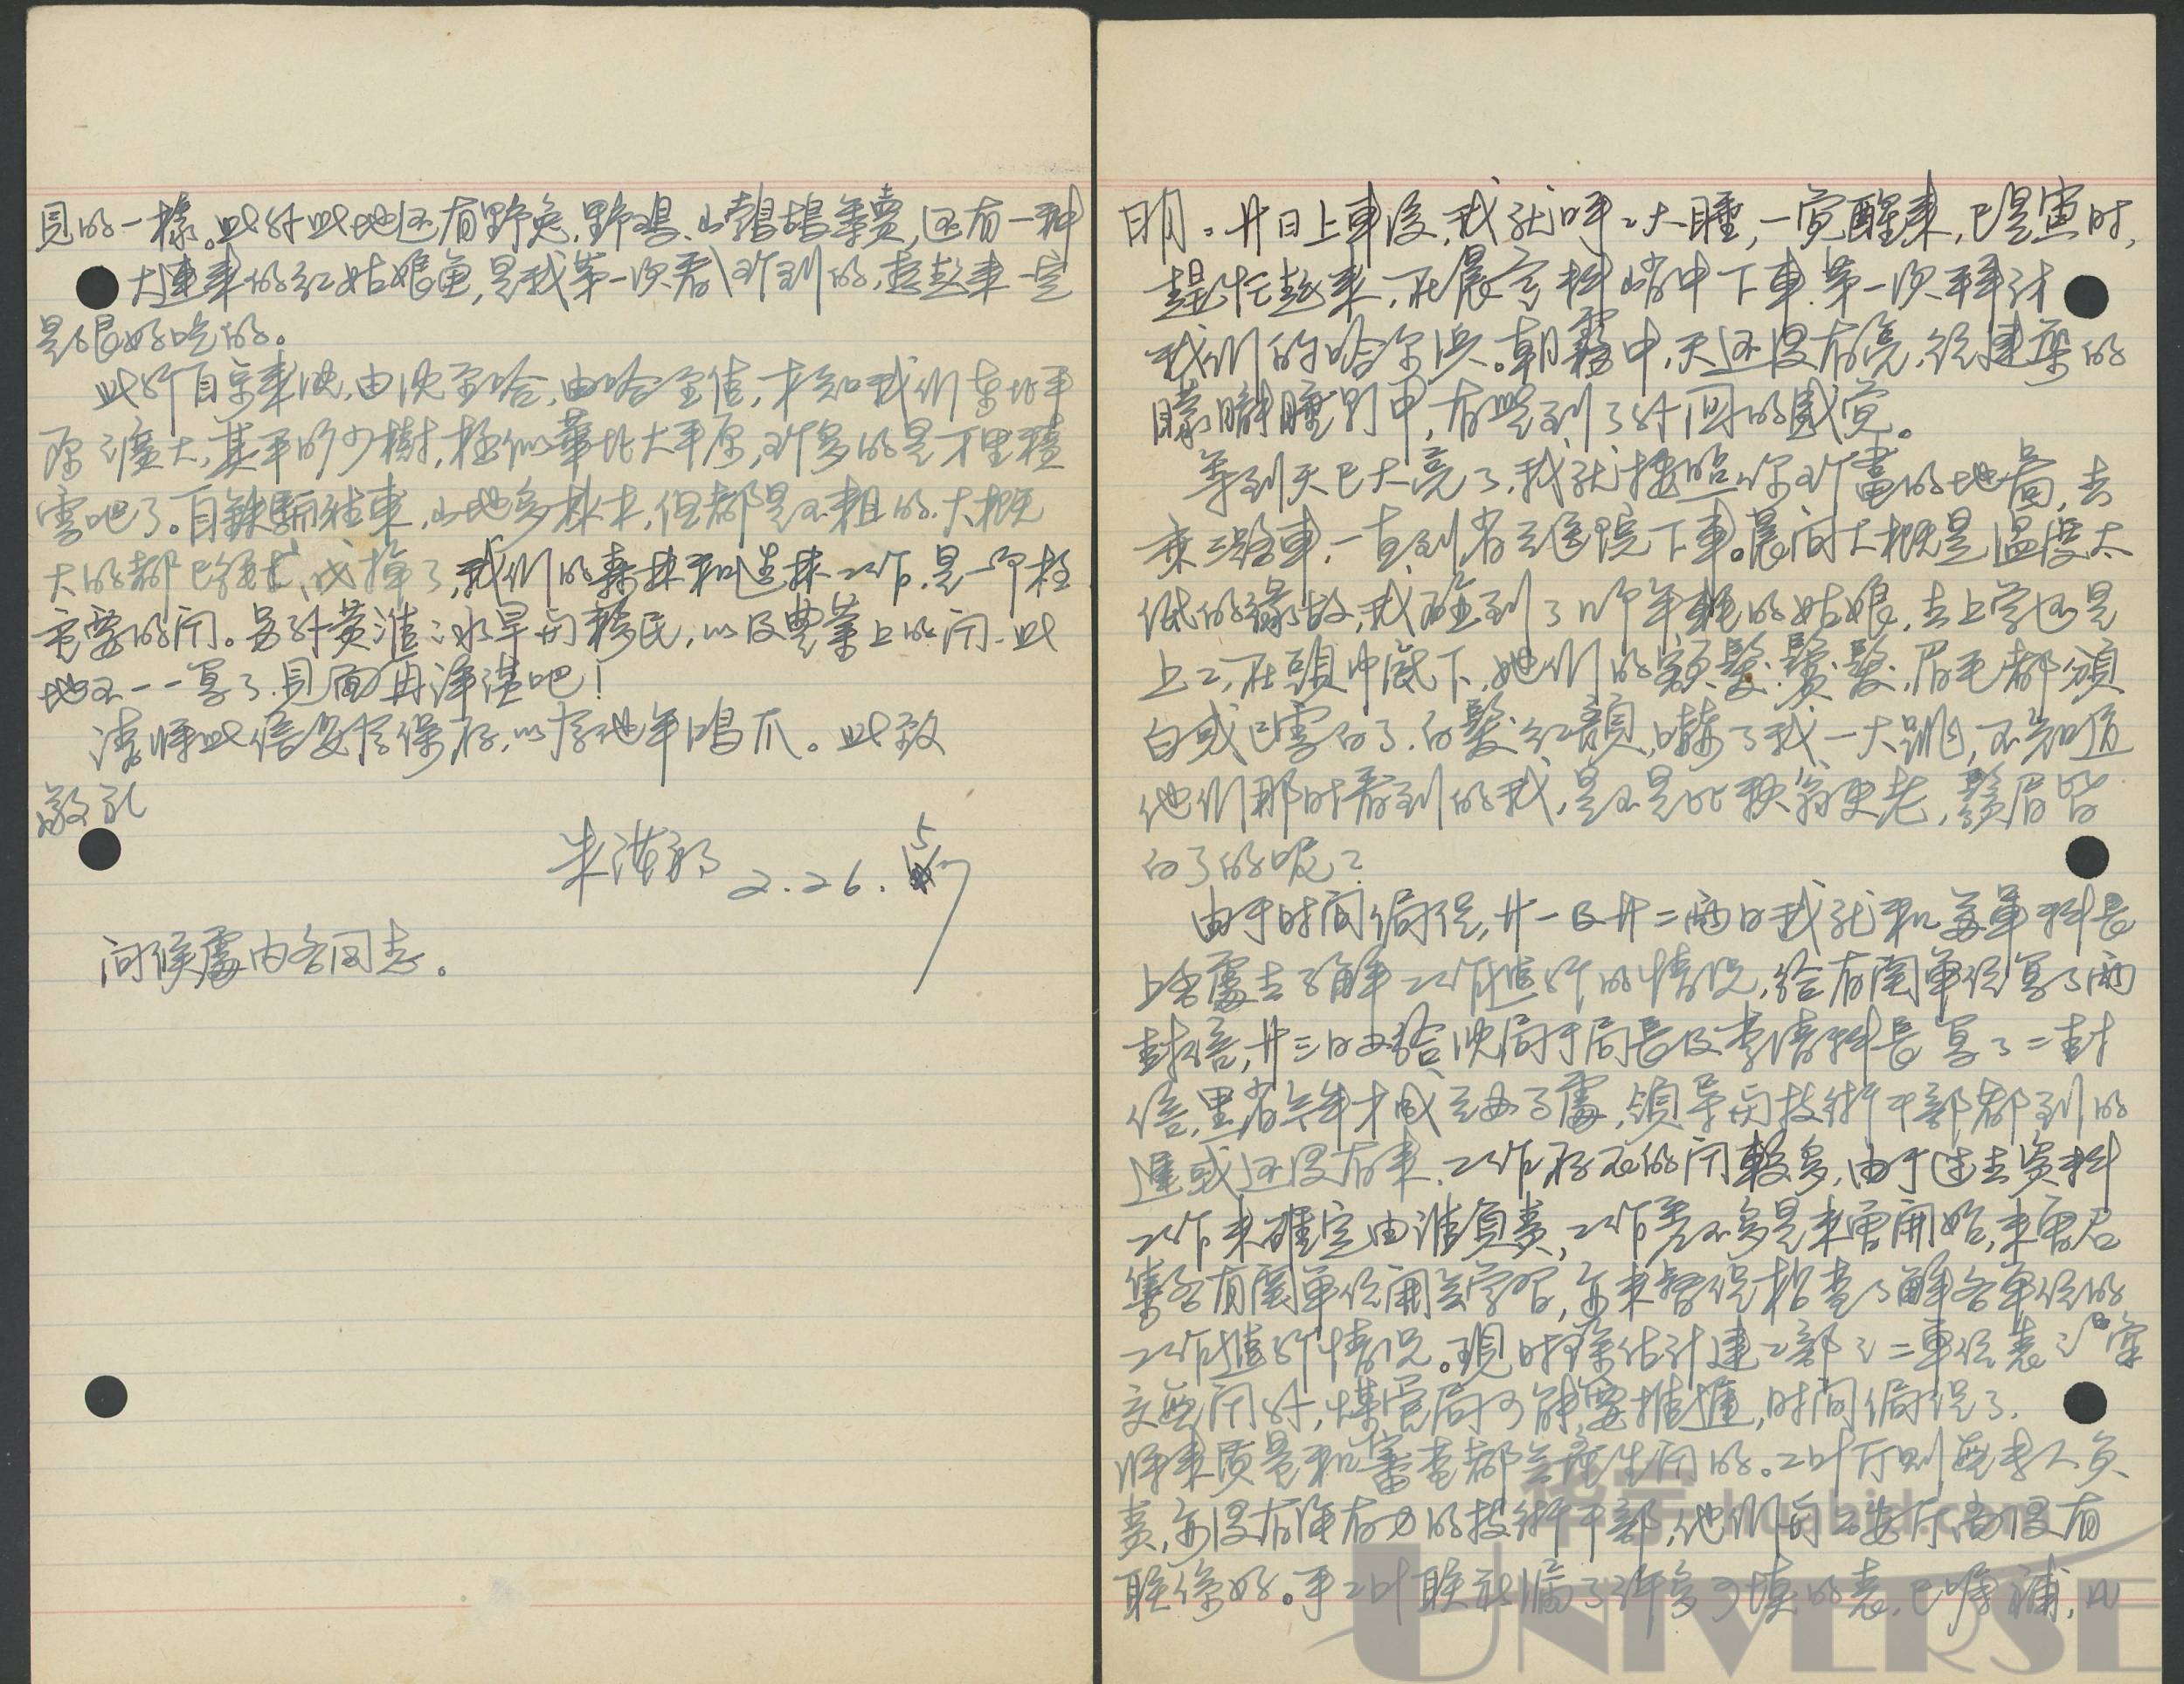 見的一樣。此外此地还有野兔,野鸡、山鷄等賣,还有一种
大連來的紅姑娘魚,是我第一次看所到的,想起來一定
是很好吃的。
此行自京來沈,由沈至哈,由哈至佳,才知我们东北平
原之廣大,其平而少樹,極似華北大平原,所多的是千里積
雪吧了。自 往東,山地多林木,但都是不粗的,大概
大的都已 成 掉了,我们的森林和造林工作,是一个極
重要的问。另外黄淮 水旱 移民,以及農業上的问,此
地不一一寫了,見面再詳談吧!
請將此信妥存保存,以存他年鴻爪。此致
敬礼
朱 2.26.57
问候處内各同志。
明。廿日上車後,我就呼呼大睡,一觉醒來,已是寅时,
趕忙起來,在晨 中下車,第一次拜訪
我们的哈尔浜。朝霧中,天还没有亮,從建築的
朦朧 中,有些到了外国的感觉。
等到天已大亮了,我就按照你所畫的地图,去
乘三路車,一直到省立医院下車。晨间大概是温度太
低的緣故,我碰到了几个年輕的姑娘,去上学也是
上工,在頭巾底下,她们的额髮、鬓髮、眉毛都 頒
白或已雪白了,白髮紅顏,嚇了我一大跳,不知道
他们那时看到的我,是不是比 翁更老,鬚眉皆
白了的呢?
由于时间偏促,廿一及廿二两日我就和姜單科長
上各處去了解工作進行的情况,给有関單位寫了两
封信,廿三日又给沈局于局長及李清科長寫了二封
信,黑省 年才成立 處,領导与技術干部都到的
遲或还没有來,工作存在的问較多,由于过去资料
工作未確定由谁負责,工作差不多是未曾開始,未曾召
集各有関單位開会学習,亦未督促检查了解各單位的
工作進行情况。現时 估计建工部之二單位表
交無问外,煤管局可能要推遲,时间偏促了,
將來质量和審查都会產生问的。工业厅则無專人負
责,亦没有 有力的技術干部,他们与公安厅尚没有
联係好。手工业联社漏了许多可填的表,已 補,